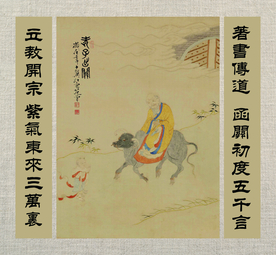 著書傳道 函關初度五千言
老子出關
立教開宗 紫氣東來三萬裏